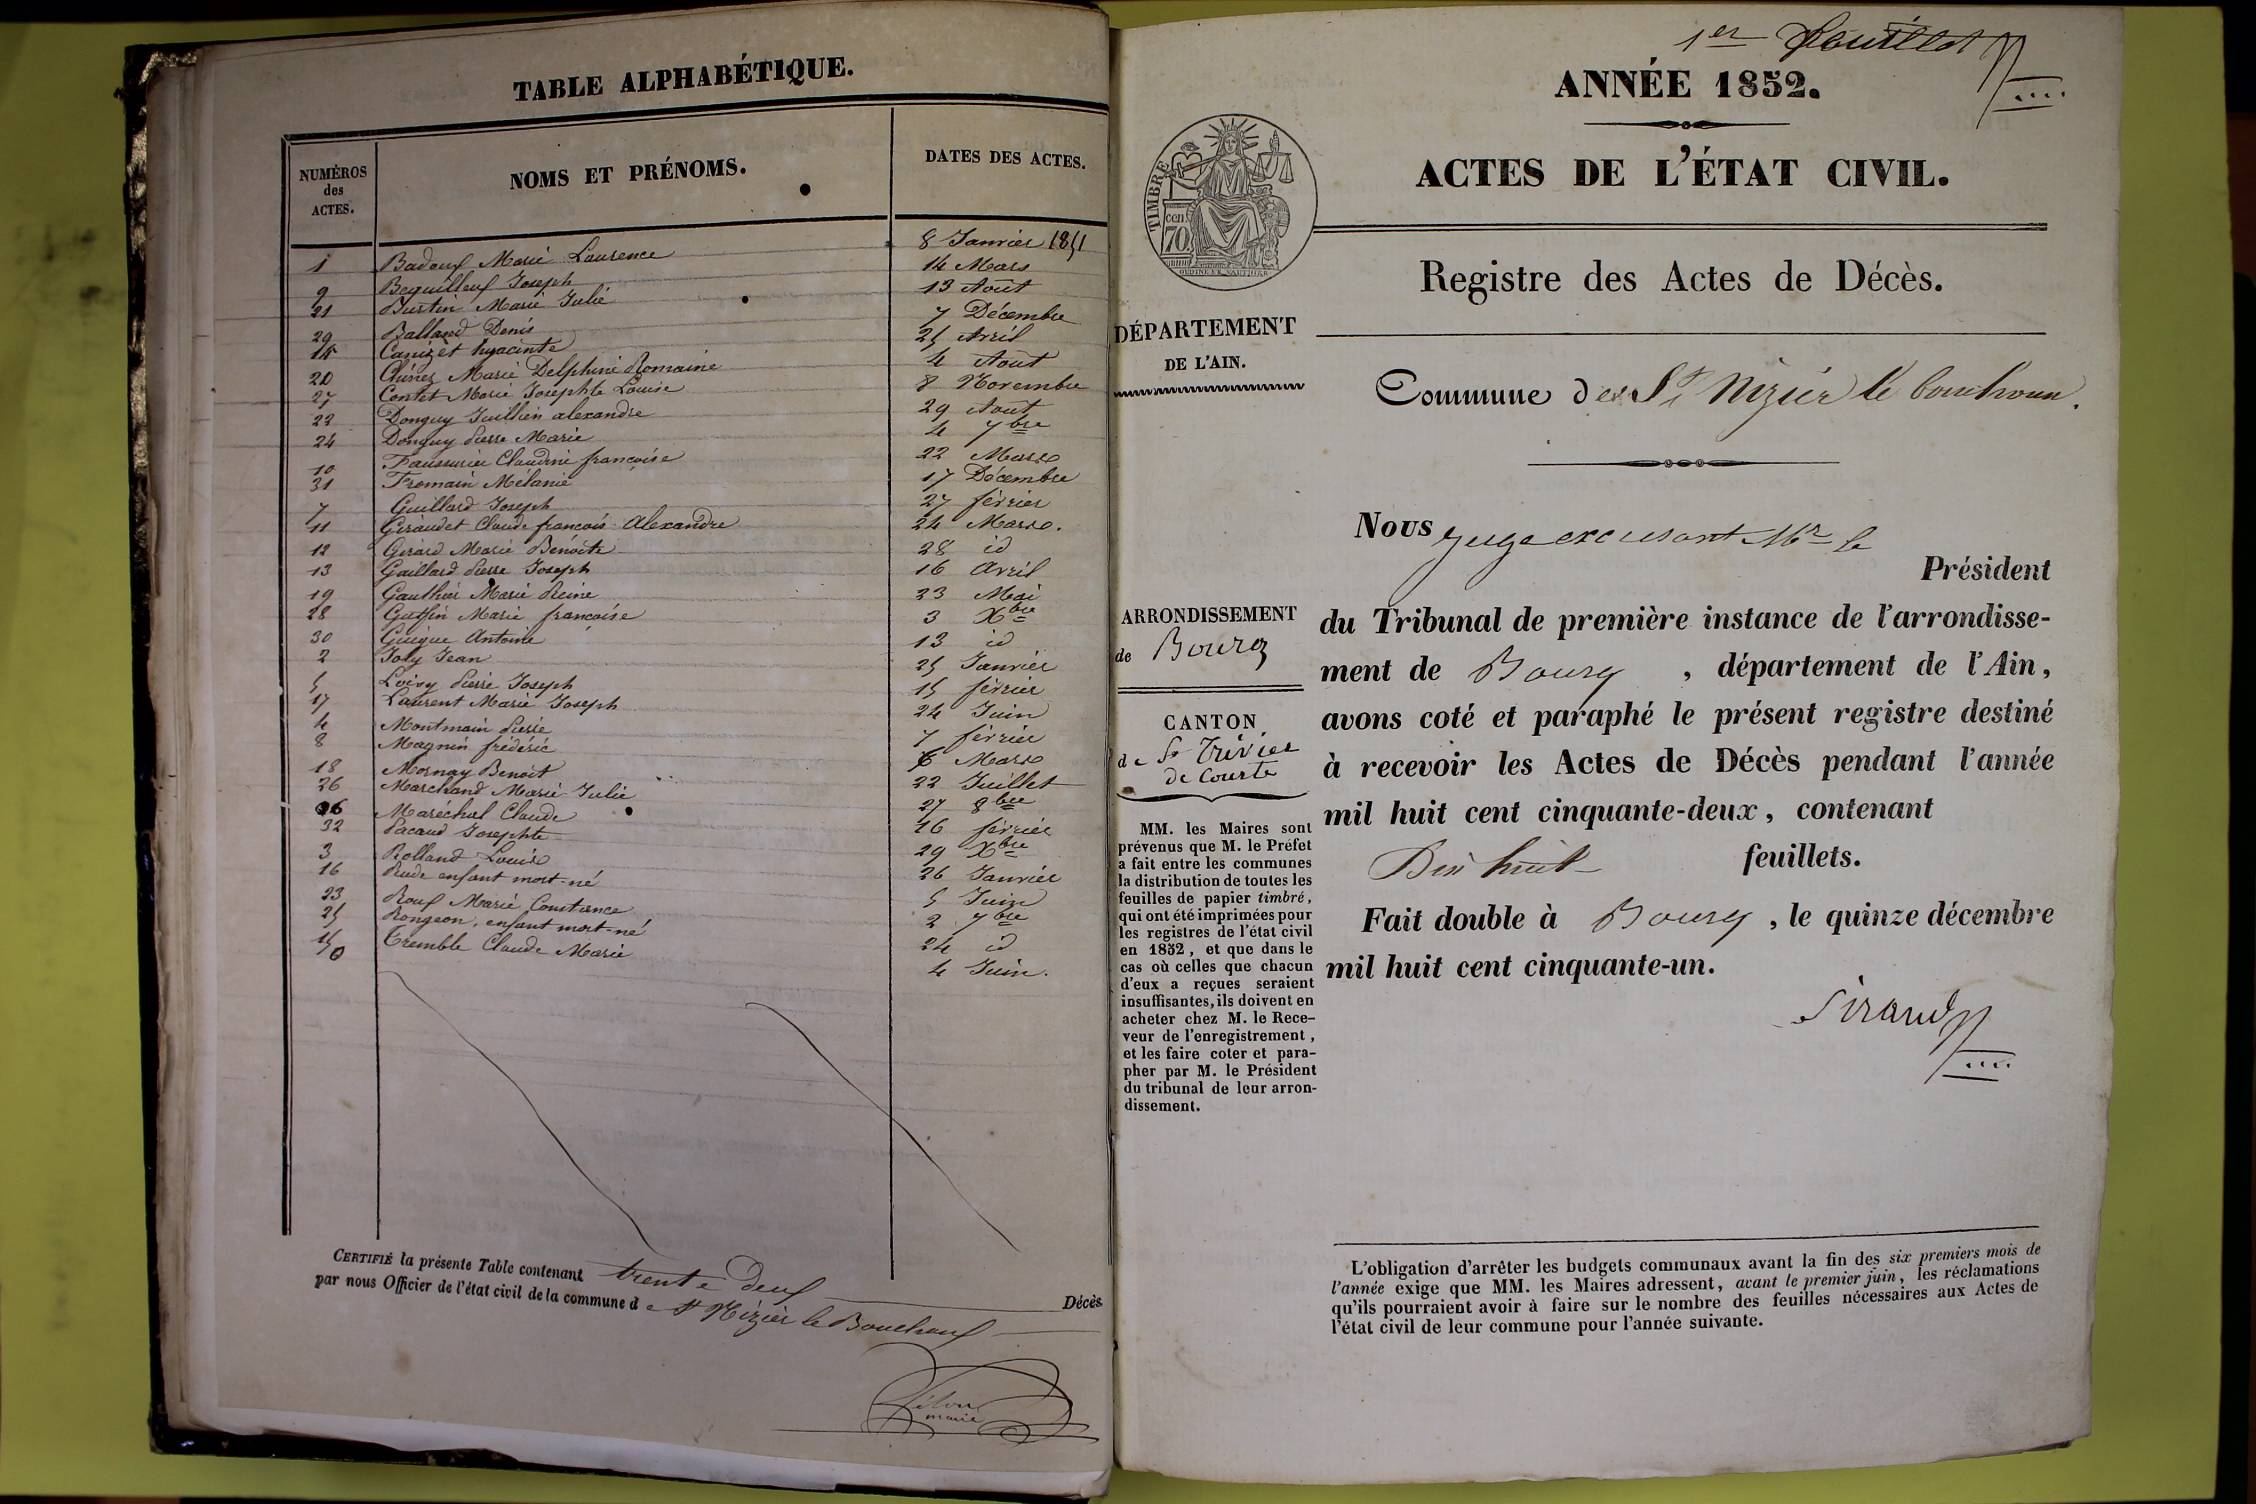 TABLE ALPHABÉTIQUE.
NUMÉROS des ACTES. NOMS ET PRÉNOMS. DATES DES ACTES.
1 Badoux Marie Laurence 8 Janvier 1851
9 Bequilleux Joseph 14 Mars
21 Burtin Marie Julie 13 Août
29 Balland Denis 7 Décembre
14 Canizet hyacinte 25 Avril
20 Marie Delphine Romaine 4 Août
27 Contet Marie Josephte Louise 8 Novembre
22 Donguy Juillien alexandre 29 Aout
24 Donguy Pierre Marie 4 7bre
10 Faussurier Claudine françoise 22 Mars
31 Fromain Mélanie 17 Décembre
7 Guillard Joseph 27 février
11 Giraudet Claude françois Alexandre 24 Mars.
12 Girard Marie Benoite 28 id
13 Gaillard Pierre Joseph 16 Avril
19 Gauthier Marie Reine 23 Mai
28 Marie françoise 3 Xbre
30 Guigue Antoine 13 id
2 Joly Jean 25 Janvier
5 Loivy Pierre Joseph 15 février
17 Laurent Marie Joseph 24 Juin
4 Montmain Pierre 7 février
8 Magnin frédéric 6 Mars
18 Mornay Benoit 22 Juillet
26 Marchand Marie Julie 27 8bre
6 Maréchal Claude 16 février
32 Pacaud Josephte 29 Xbre
3 Rolland Louise 26 Janvier
16 Rude enfant mort-né 5 Juin
23 Roux Marie Constance 2 7bre
25 Rongeon, enfant mort-né 24 id
15 Tremble Claude Marie 4 Juin.
CERTIFIÉ la présente Table contenant trente deux Décès
par nous Officier de l'état civil de la commune de St Nizier le Bouchoux
maire
1er feuillet
ANNÉE 1852.
ACTES DE L'ÉTAT CIVIL.
TIMBRE
70 cen.
Registre des Actes de Décès.
DÉPARTEMENT
DE L'AIN.
Commune de St Nizier le bouchoux.
Nous Juge excusant Mr le
Président
ARRONDISSEMENT
de Bourg
du Tribunal de première instance de l'arrondisse-
ment de Bourg, département de l'Ain,
avons coté et paraphé le présent registre destiné
à recevoir les Actes de Décès pendant l'année
mil huit cent cinquante-deux, contenant
Dix huit feuillets.
Fait double à Bourg, le quinze décembre
mil huit cent cinquante-un.
Sirand
CANTON
de St Trivier
de Courte
MM. les Maires sont
prévenus que M. le Préfet
a fait entre les communes
la distribution de toutes les
feuilles de papier timbré,
qui ont été imprimées pour
les registres de l'état civil
en 1852, et que dans le
cas où celles que chacun
d'eux a reçues seraient
insuffisantes, ils doivent en
acheter chez M. le Rece-
veur de l'enregistrement,
et les faire coter et para-
pher par M. le Président
du tribunal de leur arron-
dissement.
L'obligation d'arrêter les budgets communaux avant la fin des six premiers mois de
l'année exige que MM. les Maires adressent, avant le premier juin, les réclamations
qu'ils pourraient avoir à faire sur le nombre des feuilles nécessaires aux Actes de
l'état civil de leur commune pour l'année suivante.